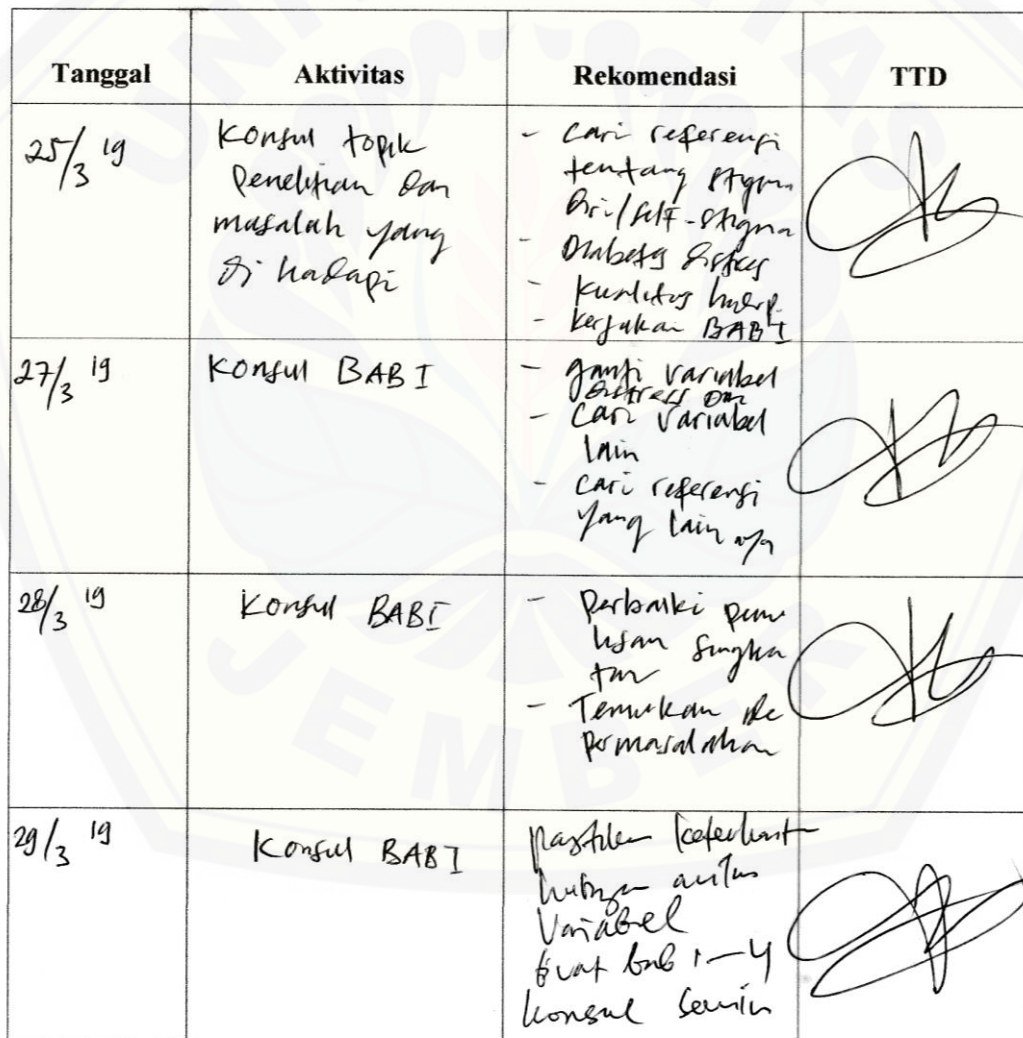 UNIVERSITAS
JEMBER
Tanggal Aktivitas Rekomendasi TTD
25/3 19
Konsul topik
Penelitian dan
masalah yang
di hadapi
- Cari referensi
tentang stigma
diri/self-stigma
- Diabetes distres
- kualitas hidup
- kerjakan BAB I
27/3 19
Konsul BAB I
- ganti variabel
distress dan
- cari variabel
lain
- cari referensi
yang lain nya
28/3 19
Konsul BAB I
- Perbaiki penu
lisan singka
tan
- Temukan
permasalahan
29/3 19
Konsul BAB I
pastikan
hubungan antar
Variabel
Buat bab 1-4
konsul Senin